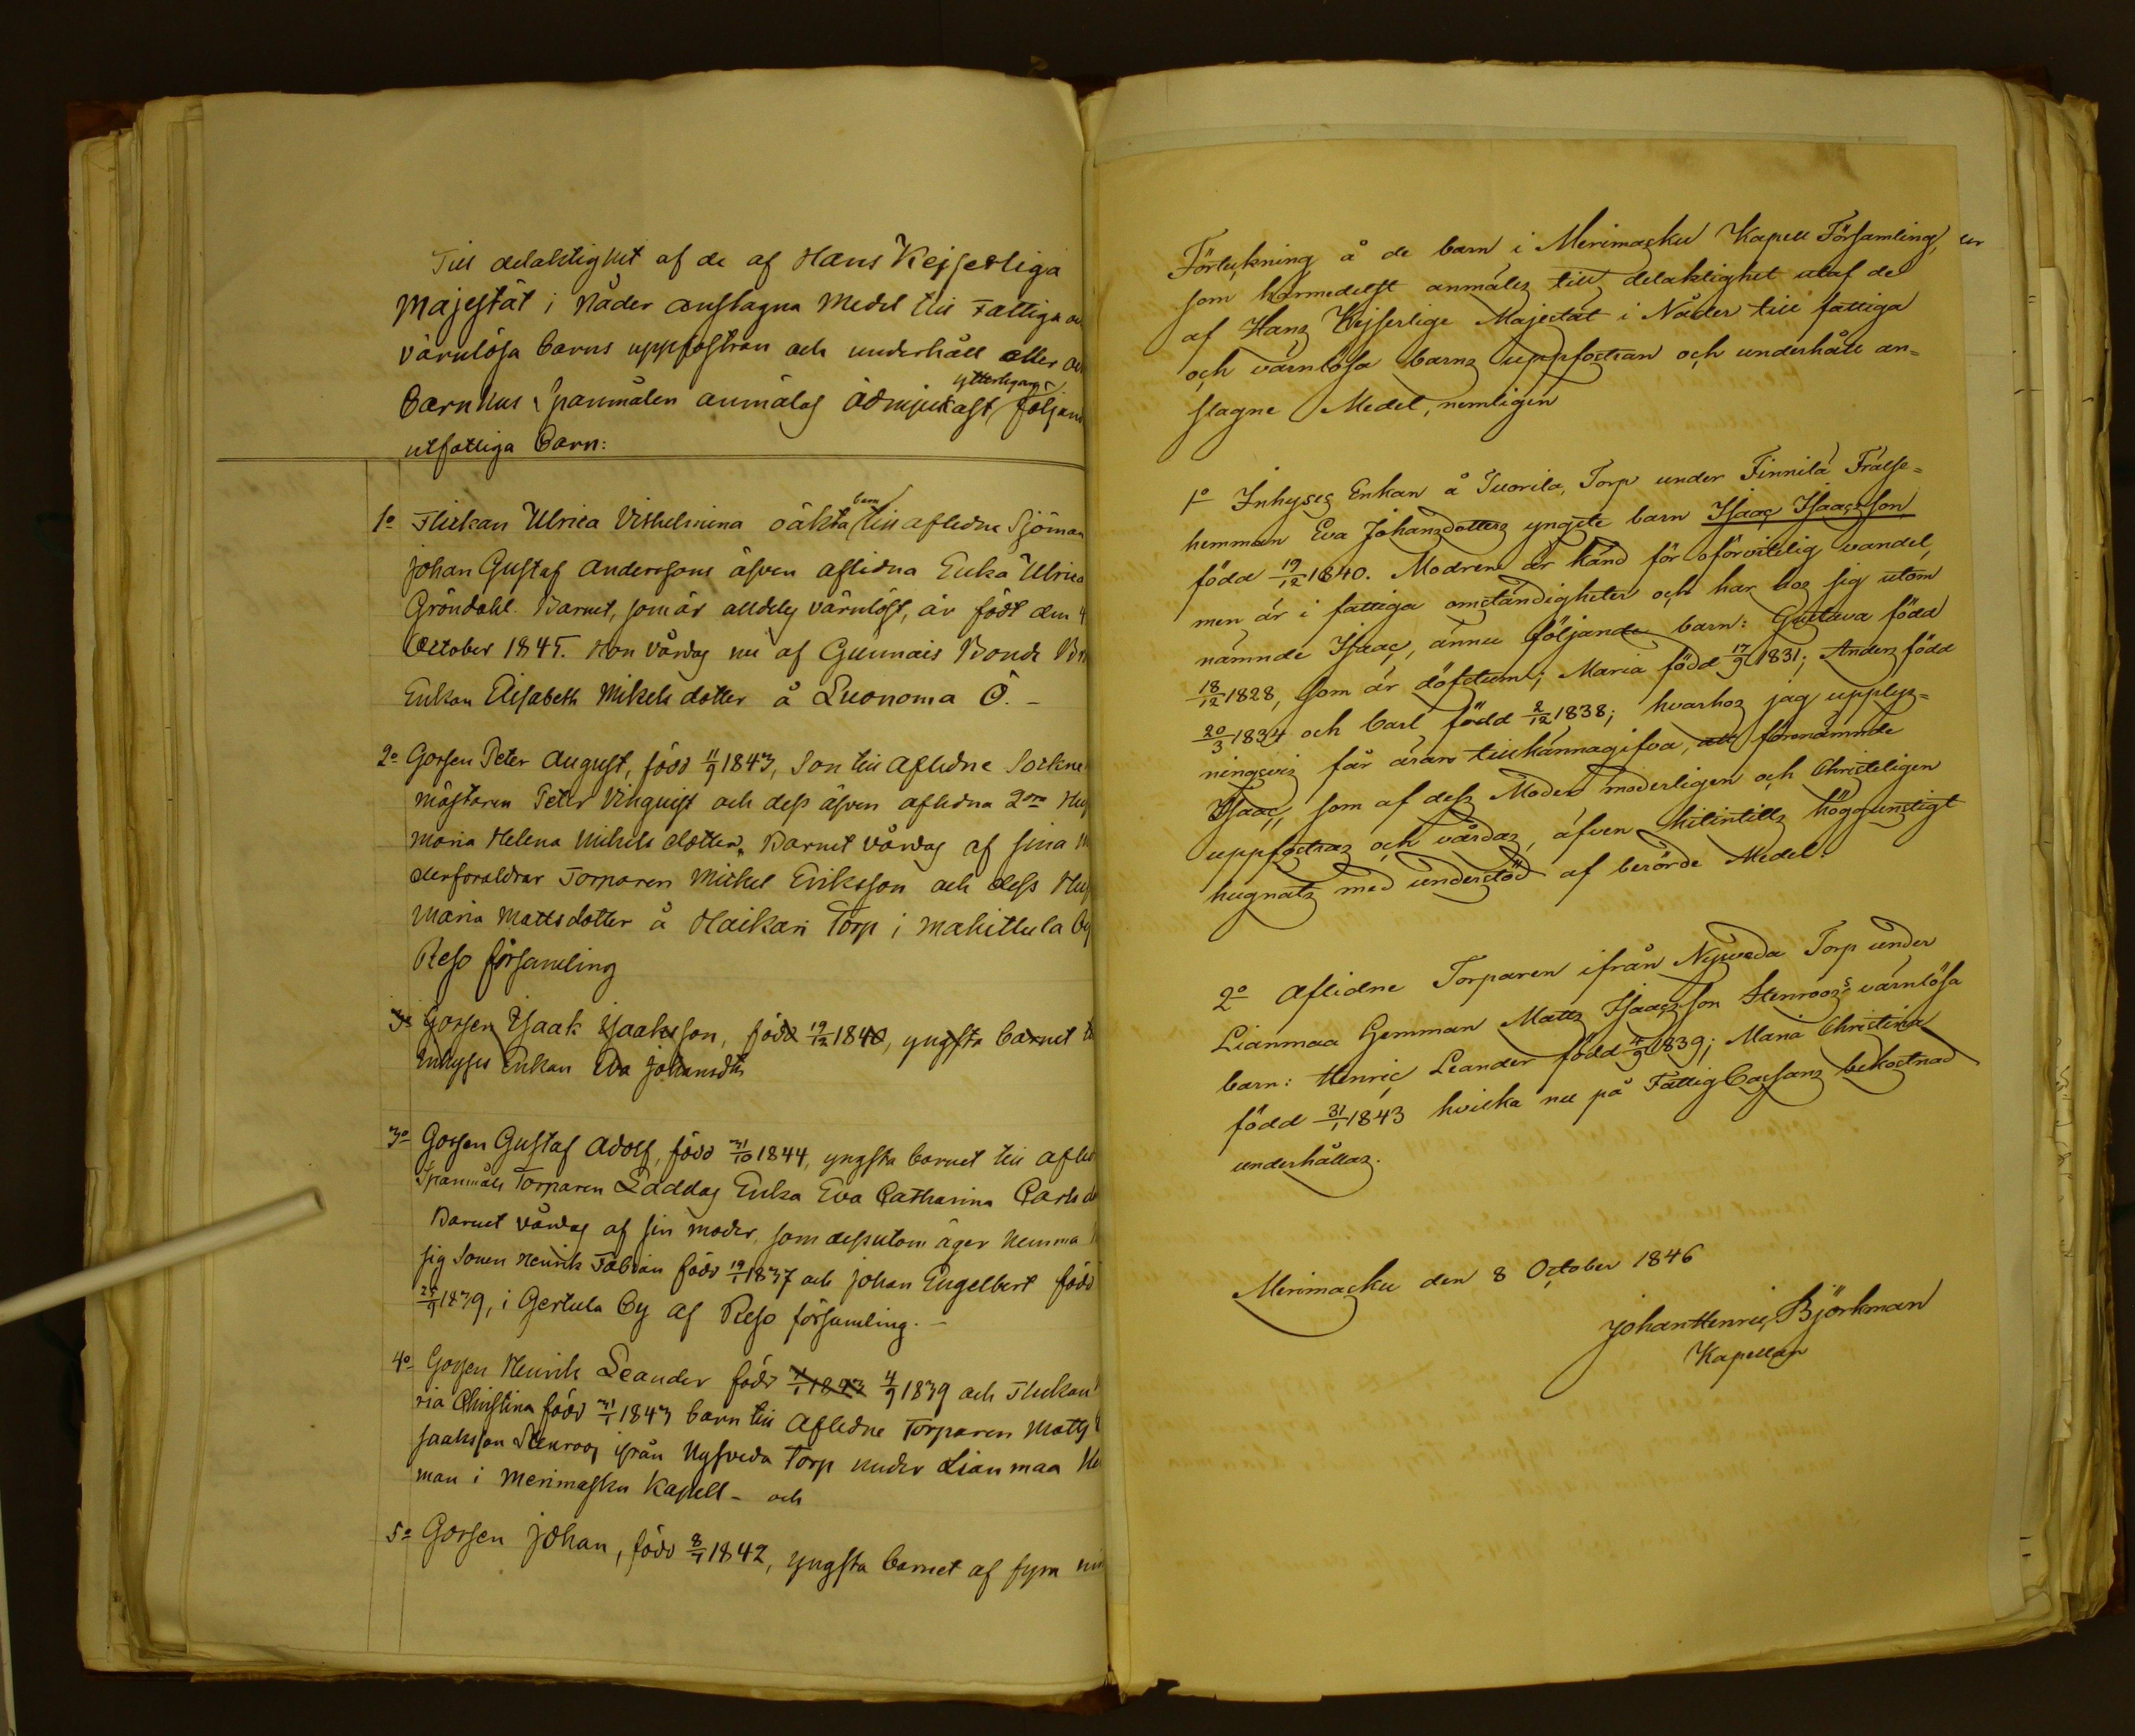 Till delaktighet af de af Hans Kejserliga
Majestät i Nåder anslagna Medel till Fattiga
värnlösa barns uppfostran och underhåll eller
Barnhus Spanmålen anmälas ödmjukast ytterligare följan
utfattiga barn:
1o Flickan Ulrica Vilhelmina oäkta barn till aflidne Sjöman
Johan Gustaf Anderssons äfven aflidna Enka Ulrica
Gröndahl. Barnet, som är alldeles värnlöst, är född den 4
October 1845. Hon vårdas nu af Gunnais Bonde
Enkan Elisabeth Mikelsdotter å Luonoma Ö. –
2o Gossen Peter August, född 11/9 1843, Son till Aflidne Sockne
mästaren Peter Vinquist och dess äfven aflidna 2dra Hu
Maria Helena Mikelsdotter. Barnet vårdas af sina M
derforäldrar Torparen Mickel Eriksson och dess Hus
Maria Mattsdotter å Haikari Torp i Mahittula By
Reso församling
3o Gossen Isaak Isaaksson, född 19/12 1840, yngsta barnet
Inhyses Enkan Eva Johansdtr
3o Gossen Gustaf Adolf, född 31/10 1844, yngsta barnet till aflid
Spanmåls Torparen Laddas Enka Eva Catharina Carlsd
Barnet vårdas af sin moder, som dessutom äger hemma
sig Sonen Henrik Fabian född 19/1 1837 och Johan Engelbert född
/9 1839, i Gertula By af Reso församling. –
4o Gossen Henrik Leander född 4/9 1839 och Flickan
ria Christina född 31/1 1843 barn till Aflidne Torparen Matts
saaksson Stenroos ifrån Nysveda Torp under Lianmaa He
man i Merimasku Kapell – och
5o Gossen Johan, född 8/1 1842, yngsta barnet af fyra
Förtekning å de barn i Merimasku Kapell Församling,
som härmedelst anmäles till delaktighet utaf de
af Hans Kejserlige Majestät i Nåder till fattiga
och värnlösa barns uppfostran och underhåll an=
slagne Medel, nemligen
1o Inhyses Enkan å Tuorila, Torp under Finnilä Frälse=
hemman Eva Johansdotters yngste barn Isaac Isaacsson
född 19/12 1840. Modren är känd för oförvitelig vandel,
men är i fattiga omständigheter och har hos sig utom
nämnde Isaac, ännu följande barn: Gustava född
18/12 1828, som är döfstum; Maria född 17/9 1831; Anders född
20/3 1834 och Carl född 2/12 1838; hvarhos jag upplys=
ningsvis får äran tillkännagifva, att förenämnde
Isaac, som af dess Moder moderligen och Christeligen
uppfostras och vårdas, äfven hitintills höggunstigt
hugnats med understöd af berörde Medel.
2o Aflidne Torparen ifrån Nysveda Torp under
Lianmaa Hemman Matts Isaacsson Stenroos's värnlösa
barn: Henric Leander född 4/9 1839; Maria Christina
född 31/1 1843 hvilka nu på FattigCassans bekostnad
underhållas.
Merimasku den 8 October 1846
Johan Henric Björkman
Kapellan